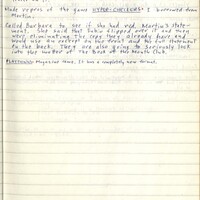 Made copies of the game HYPER-CHECKERS I borrowed from
Martin.
Called Barbara to see if she had red Martin's state-
ment. She said that flipped over it and then
were eliminating the copy they already have and
would use an excerpt on the front and the full statement
on the back. They are also going to seriously look
into the matter of the Book of the Month Club.
Magazine came. It has a completely new format.